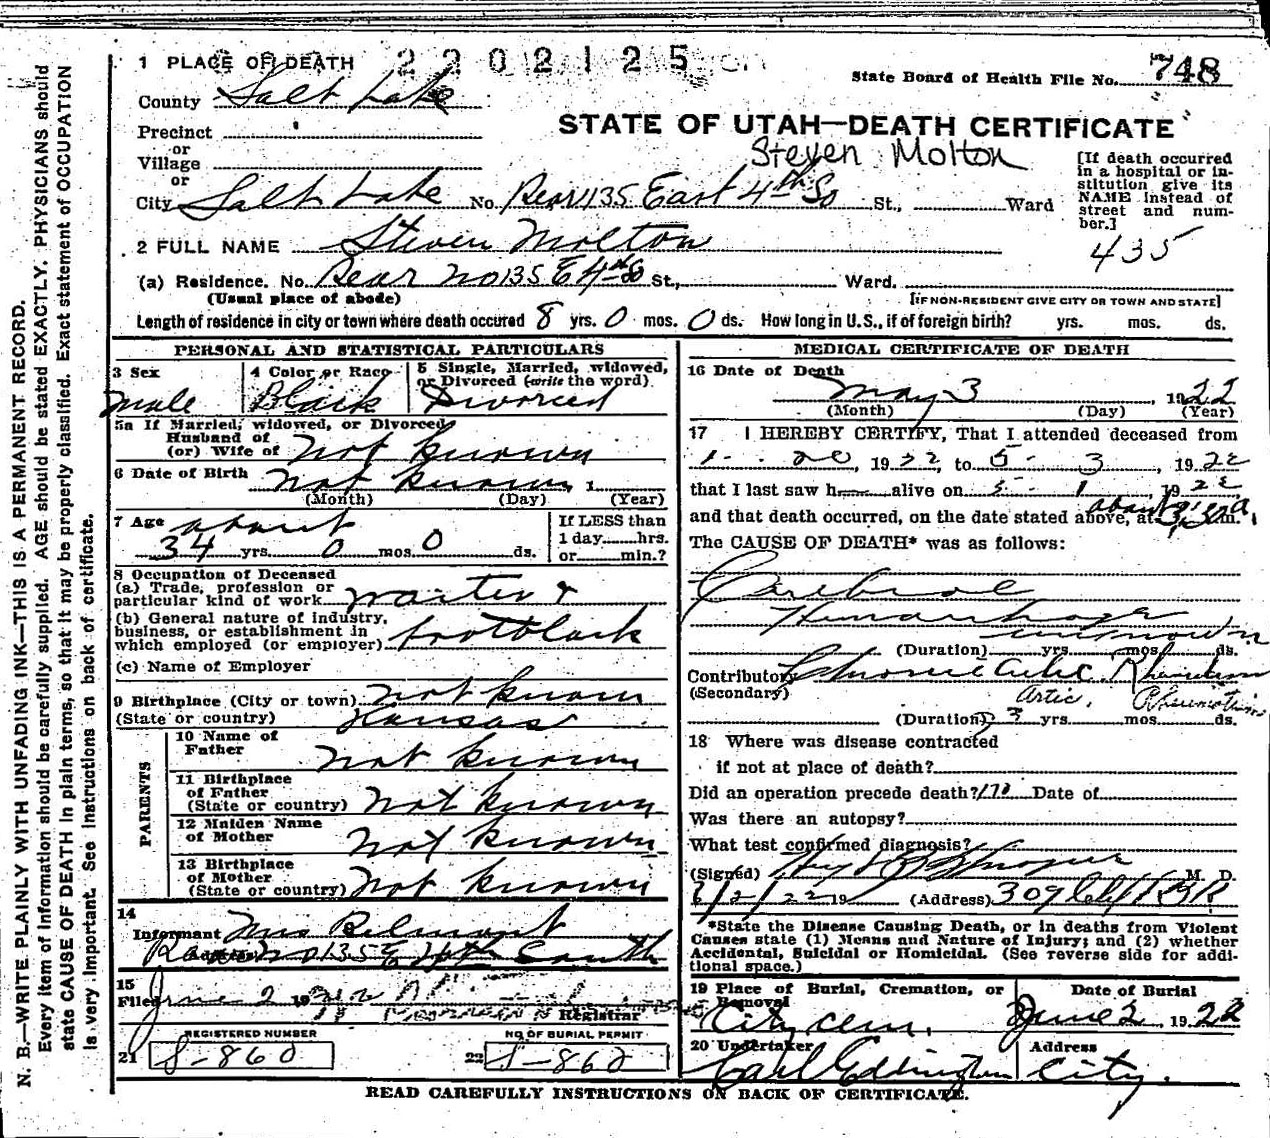 N. B.—WRITE PLAINLY WITH UNFADING INK—THIS IS A PERMANENT RECORD.
Every item of information should be carefully supplied. AGE should be stated EXACTLY. PHYSICIANS should
state CAUSE OF DEATH in plain terms, so that it may be properly classified. Exact statement of OCCUPATION
is very important. See instructions on back of certificate.
1 PLACE OF DEATH 2202125
State Board of Health File No. 748
County Salt Lake
STATE OF UTAH—DEATH CERTIFICATE
Precinct
or
Village
or
Steven Molton
[If death occurred
in a hospital or in-
stitution give its
NAME instead of
street and num-
ber.]
City Salt Lake No. Rear 135 East 4th So St., Ward
435
2 FULL NAME Steven Molton
(a) Residence. No. Rear No 135 E 4th So St., Ward.
(Usual place of abode) [IF NON-RESIDENT GIVE CITY OR TOWN AND STATE]
Length of residence in city or town where death occured 8 yrs. 0 mos. 0 ds. How long in U.S., if of foreign birth? yrs. mos. ds.
PERSONAL AND STATISTICAL PARTICULARS
3 Sex 4 Color or Race 5 Single, Married, widowed,
or Divorced (write the word)
Male Black Divorced
5a If Married, widowed, or Divorced
Husband of
(or) Wife of not known
6 Date of Birth not known
(Month) (Day) (Year)
7 Age about
34 yrs. 0 mos. 0 ds.
If LESS than
1 day hrs.
or min.?
8 Occupation of Deceased
(a) Trade, profession or
particular kind of work waiter &
(b) General nature of industry,
business, or establishment in
which employed (or employer) bootblack
(c) Name of Employer
9 Birthplace (City or town) not known
(State or country) Kansas
PARENTS
10 Name of
Father not known
11 Birthplace
of Father
(State or country) not known
12 Maiden Name
of Mother not known
13 Birthplace
of Mother
(State or country) not known
14
Informant Mrs Belmont
Address No 135 E 4th South
15
Filed June 2 19
Registrar
REGISTERED NUMBER NO. OF BURIAL PERMIT
21 S-860 22 S-860
MEDICAL CERTIFICATE OF DEATH
16 Date of Death
May 3, 1922
(Month) (Day) (Year)
17 I HEREBY CERTIFY, That I attended deceased from
1922, to 5 - 3, 1922
that I last saw h alive on 5 - 1 1922
and that death occurred, on the date stated above, at about 3:30 a. m.
The CAUSE OF DEATH* was as follows:
Cerebral
Hemorrhage
unknown
(Duration) yrs. mos. ds.
Contributory Chronic
(Secondary) Artic. Rheumatism
(Duration) 3 yrs. mos. ds.
18 Where was disease contracted
if not at place of death?
Did an operation precede death? no Date of
Was there an autopsy?
What test confirmed diagnosis?
(Signed) M. D.
6/2/22 19 (Address) 309
*State the Disease Causing Death, or in deaths from Violent
Causes state (1) Means and Nature of Injury; and (2) whether
Accidental, Suicidal or Homicidal. (See reverse side for addi-
tional space.)
19 Place of Burial, Cremation, or
Removal Date of Burial
City cem. June 2, 1922
20 Undertaker Address
Carl Eddington City.
READ CAREFULLY INSTRUCTIONS ON BACK OF CERTIFICATE.